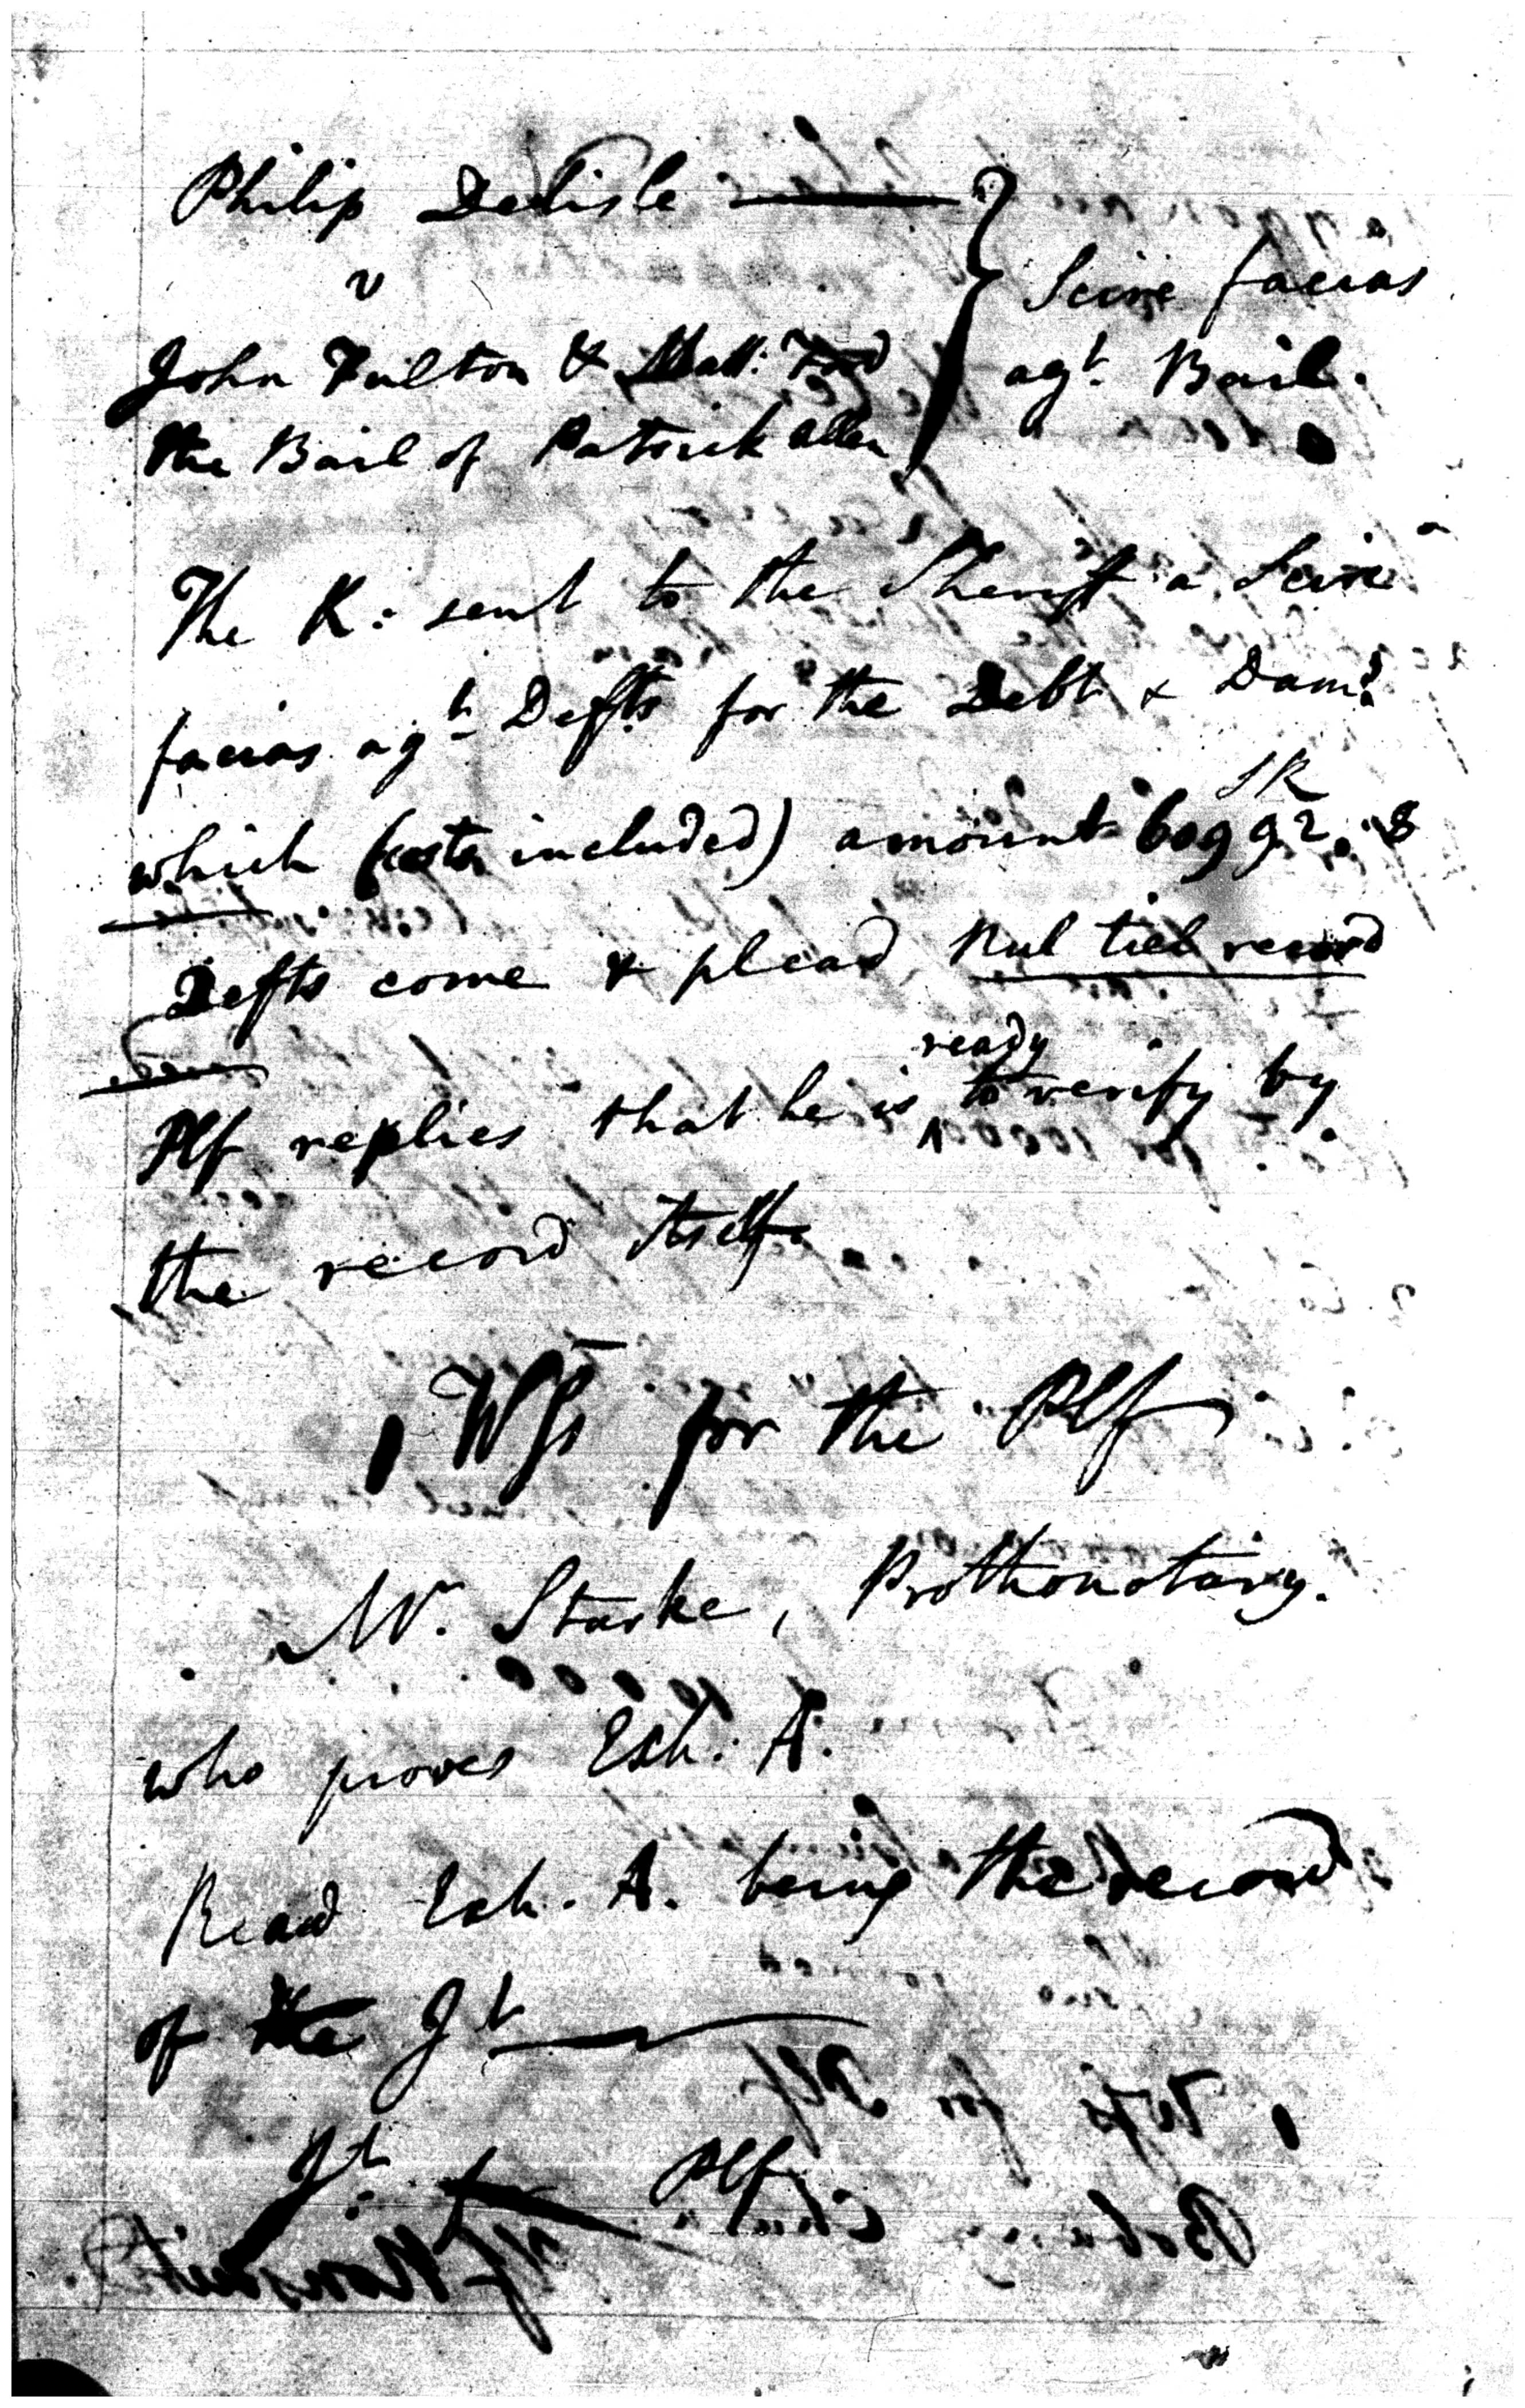 Philip Delisle
v
Scire facias
John Fulton & Matt: Ford
agt. Bail.
the Bail of Patrick Allen
The K: sent to the Sheriff a Scire
facias agt Defts for the Debt & Dams
SR
which (costs included) amount 609 92. 8
Defts come & plead, Nul tiel record
ready
Plf replies that he is ^ to verify by
the record itself
1 Wss for the Plf
Mr. Starke, Prothonotary.
who proves Exh: A.
Read Exh. A. being the record
of the Jt
Jt. Plf